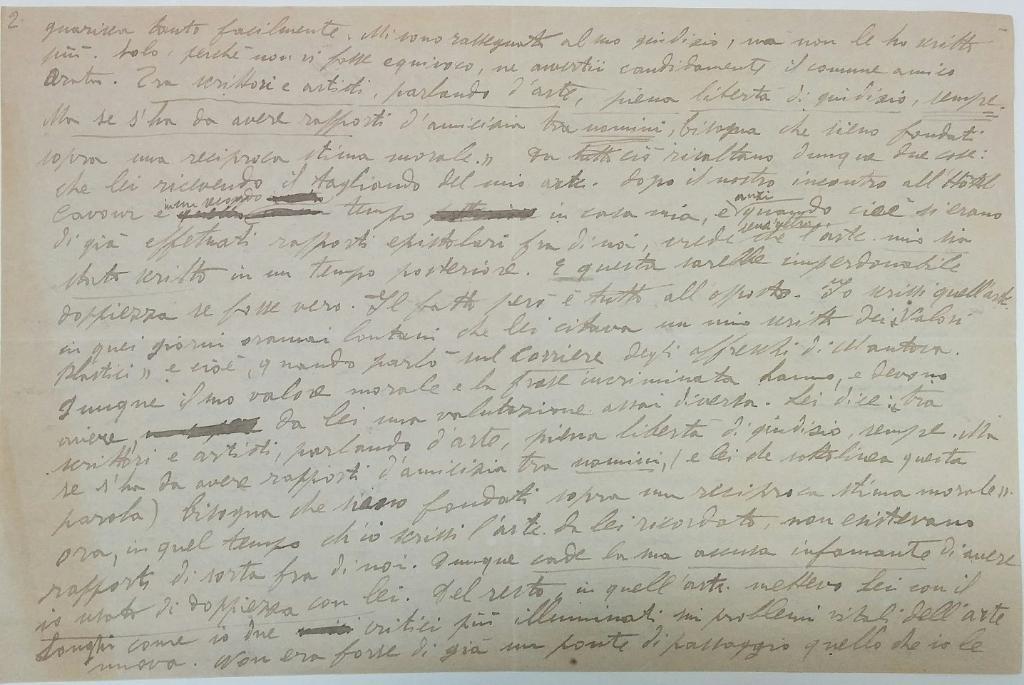 2.
guarisca tanto facilmente. Mi sono rassegnato al suo giudizio, ma non le ho scritto
più. Solo, perché non vi fosse equivoco, ne avvertii candidamente il comune amico
Tra scrittori e artisti, parlando d'arte, piena libertà di giudizio, sempre.
Ma se s'ha da avere rapporti d'amicizia tra uomini, bisogna che sieno fondati
sopra una reciproca stima morale." Da tutto ciò risultano dunque due cose:
che lei ricevendo il tagliando del mio arte. dopo il nostro incontro all'Hôtel
Cavour e in un secondo tempo in casa mia, e anzi quando cioè si erano
di già effettuati rapporti epistolari fra di noi, crede senz'altro che l'arte. mio sia
stato scritto in un tempo posteriore. E questa sarebbe imperdonabile
doppiezza se fosse vero. Il fatto però è tutto all'opposto. Io scrissi quell'arte.
in quei giorni oramai lontani che lei citava un mio scritto dei "Valori
Plastici" e cioè, quando parlò sul Corriere degli affreschi di Mantova.
Dunque il suo valore morale e la frase incriminata hanno, e devono
avere, da lei una valutazione assai diversa. Lei dice: "tra
scrittori e artisti, parlando d'arte, piena libertà di giudizio, sempre. Ma
se s'ha da avere rapporti d'amicizia tra uomini, (e lei sottolinea questa
parola) bisogna che sieno fondati sopra una reciproca stima morale".
Ora, in quel tempo ch'io scrissi l'arte. da lei ricordato, non esistevano
rapporti di sorta fra di noi. Dunque cade la sua accusa infamante di avere
io usato di doppiezza con lei. Del resto, in quell'arte. mettevo Lei con il
Longhi come io due critici più illuminati sui problemi vitali dell'arte
nuova. Non era forse di già un ponte di passaggio quello che io le